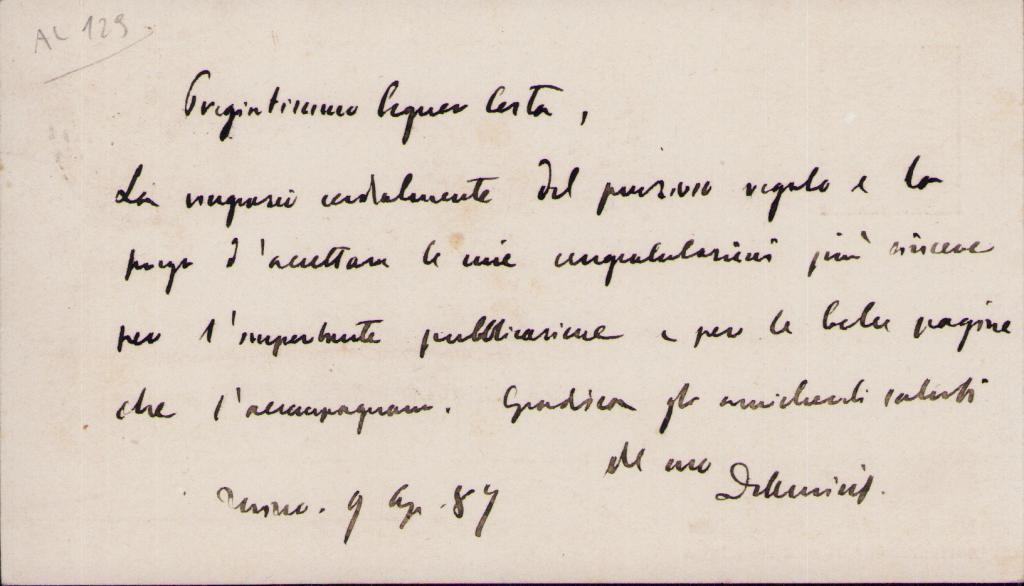 AL 129
Pregiatissimo Signor Costa,
La ringrazio cordialmente del prezioso regalo e la
prego d'accettare le mie congratulazioni più sincere
per l'importante pubblicazione e per le belle pagine
che l'accompagnano. Gradisca gli amichevoli saluti
del suo
DeAmicis.
Torino. 9 Ap. 87